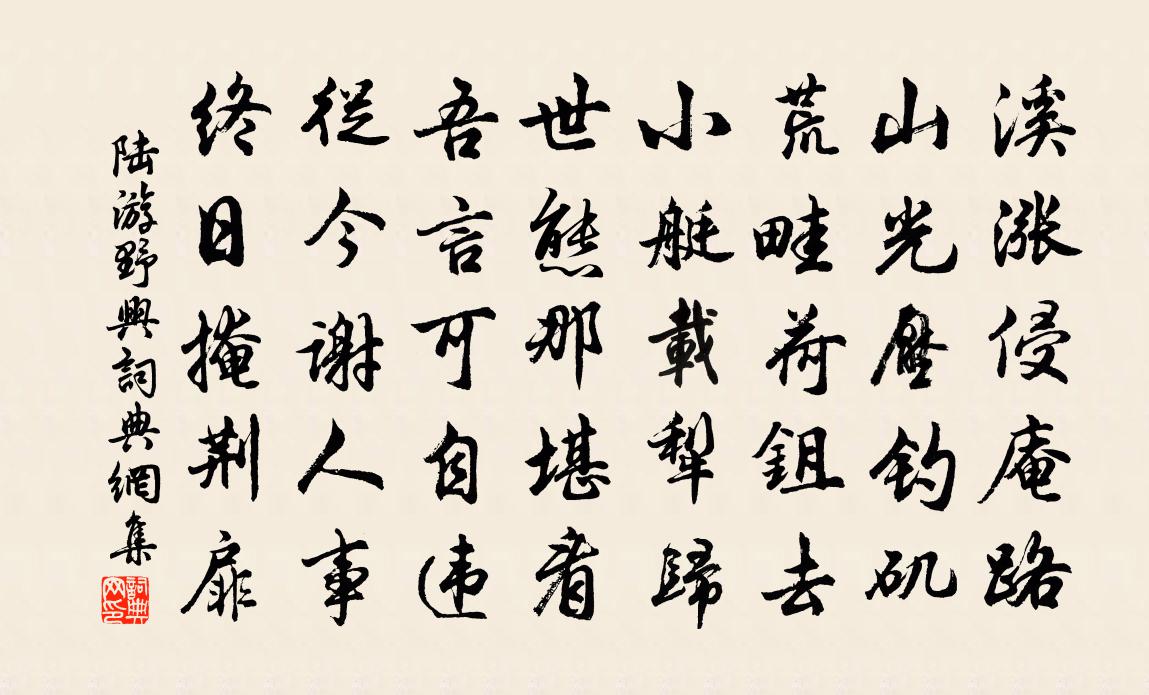 溪漲侵庵路
山光壓釣矶
荒畦荷鉏去
小艇載犁歸
世態那堪看
吾言可自违
從今謝人事
終日掩荆扉
陆游野興詞典網集
詞典